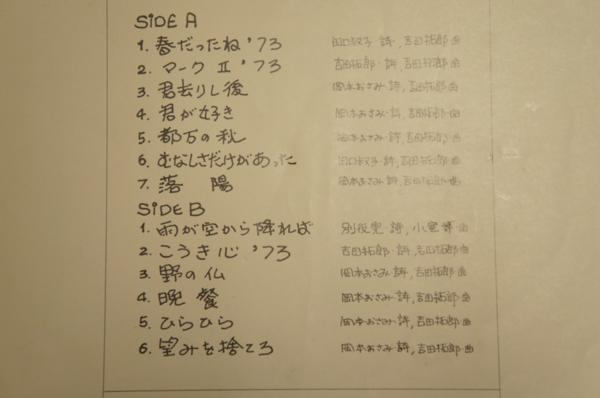 SIDE A
1. 春だったね '73 田口淑子 詩, 吉田拓郎 曲
2. マークⅡ '73 吉田拓郎・詩, 吉田拓郎 曲
3. 君去りし後 岡本おさみ・詩, 吉田拓郎 曲
4. 君が好き 岡本おさみ 詩, 吉田拓郎 曲
5. 都万の秋 岡本おさみ・詩, 吉田拓郎・曲
6. むなしさだけがあった 田口淑子・詩, 吉田拓郎・曲
7. 落 陽 岡本おさみ・詩, 吉田拓郎・曲
SIDE B
1. 雨が空から降れば 別役実 詩, 小室等 曲
2. こうき心 '73 吉田拓郎・詩, 吉田拓郎 曲
3. 野の仏 岡本おさみ・詩, 吉田拓郎 曲
4. 晩 餐 岡本おさみ 詩, 吉田拓郎 曲
5. ひらひら 岡本おさみ・詩, 吉田拓郎 曲
6. 望みを捨てろ 岡本おさみ・詩, 吉田拓郎 曲